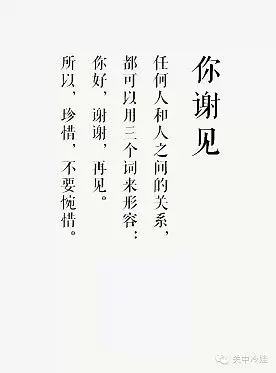 你谢见
任何人和人之间的关系，
都可以用三个词来形容：
你好，谢谢，再见。
所以，珍惜，不要惋惜。
关中冷娃